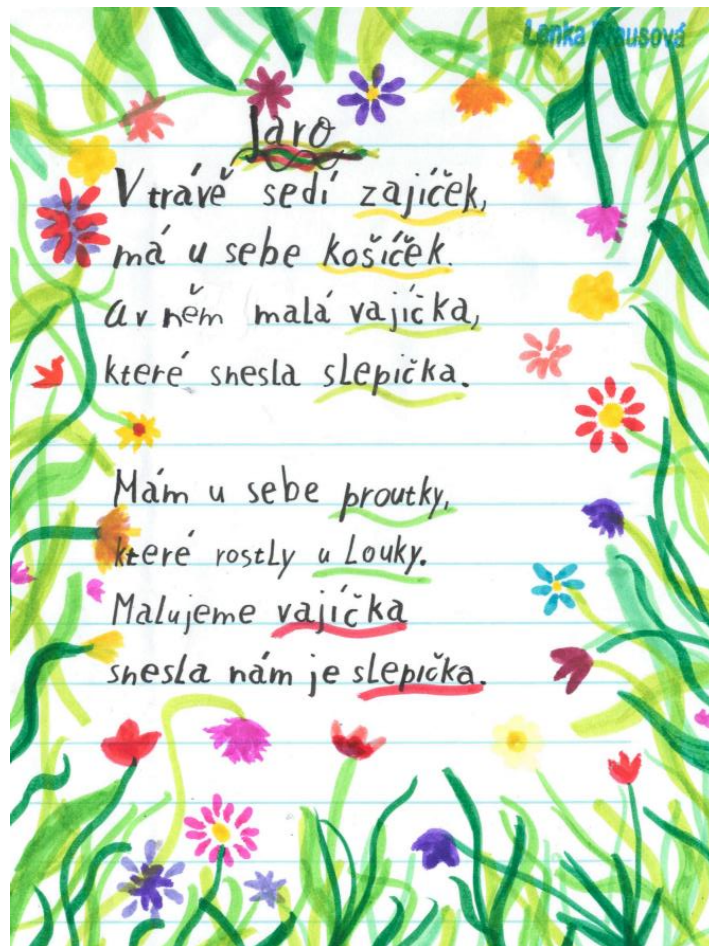 Lenka Krausová
Jaro
V trávě sedí zajíček,
má u sebe košíček.
a v něm malá vajíčka,
které snesla slepička.
Mám u sebe proutky,
které rostly u Louky.
Malujeme vajíčka
snesla nám je slepička.